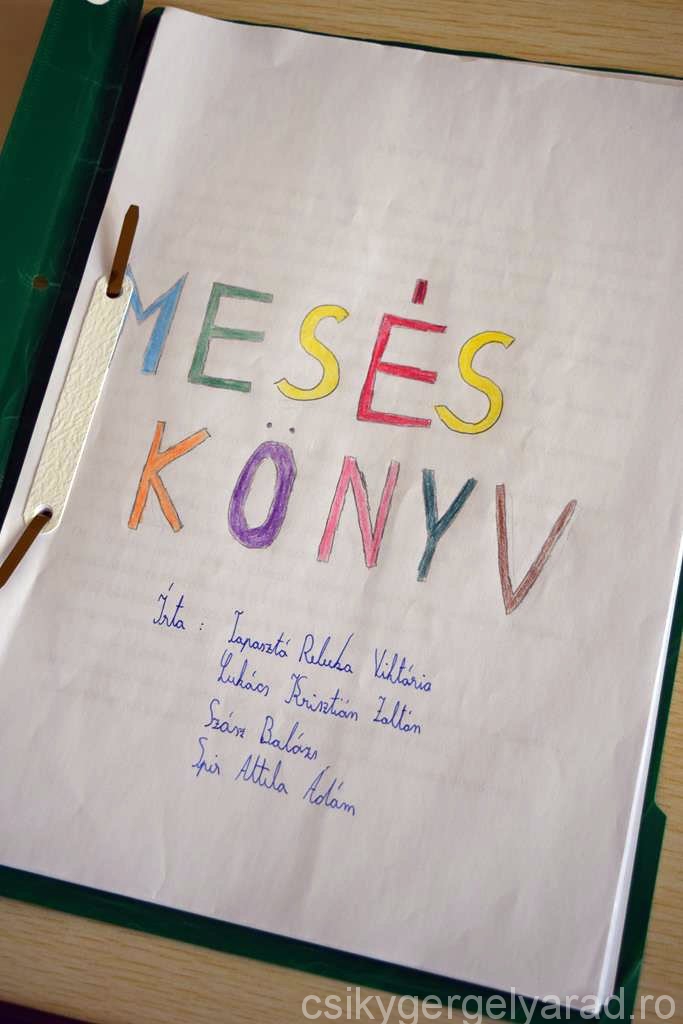 MESÉS
KÖNYV
Írta : Tapasztó Reluka Viktória
Lukács Krisztián Zoltán
Szász Balázs
Spir Attila Ádám
csikygergelyarad.ro